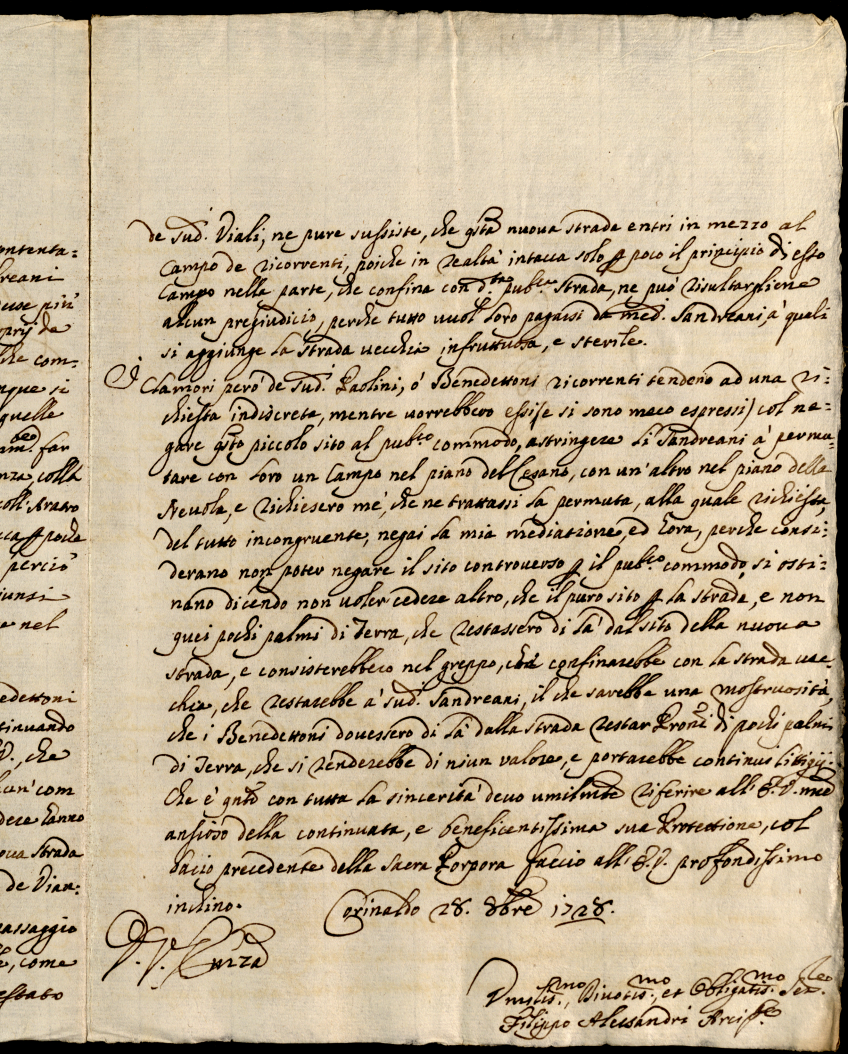 ontenta=
dreani
ause più
proprij de
che com-
nque si
quelle
far
nza, colla
coll'Aratro
poche
perciò
giunsi
e nel
edettoni
tinuando
V., che
cun' com
dece hanno
ova strada
de Vian:
passaggio
le, come
estato
de sud.ⁱ Viali, ne pure sussiste, che q̃sta nuova strada entri in mezzo al
Campo de ricorrenti, poiche in realtà intacca solo ꝑ poco il principio di esso
Campo nella parte, che confina con d.ᵗᵃ pub.ᶜᵃ strada, ne può risultargliene
alcun pregiudicio, perche tutto vuol loro pagarsi da med.ⁱ Sandreani, a' quali
si aggiunge la strada vecchia infruttuosa, e sterile.
I Clamori però de sud.ⁱ Paolini, ò Benedettoni ricorrenti tendono ad una ri=
chiesta indiscreta, mentre vorrebbero essi (e si sono meco espressi) col ne=
gare q̃sto piccolo sito al pub.ᶜᵒ commodo, astringere li Sandreani à permu=
tare con loro un Campo nel piano del Cesano, con un'altro nel piano della
Nevola, e richiesero me, che ne trattassi la permuta, alla quale richiesta,
del tutto incongruente, negai la mia mediatione, ed hora, perche consi=
derano non poter negare il sito controverso ꝑ il pub.ᶜᵒ commodo, si osti=
nano dicendo non voler cedere altro, che il puro sito ꝑ la strada, e non
quei pochi palmi di Terra, che restassero di là dal sito della nuova
strada, e consisterebbero nel greppo, che confinarebbe con la strada vec=
chia, che restarebbe à sud.ⁱ Sandreani, il che sarebbe una mostruosità,
che i Benedettoni dovessero di là dalla strada restar Proñi di pochi palmi
di Terra, che si renderebbe di niun valore, e portarebbe continui littigij.
Che è q̃nto con tutta la sincerità devo umilm̃te riferire all'E.V. mẽ
ansioso della continuata, e beneficentissima sua Protettione, col
bacio precedente della Sacra Porpora faccio all'E.V. profondissimo
inchino. Corinaldo 28. 8bre 1728.
D. V. Emza
Vmilis.ᵐᵒ, Divotis.ᵐᵒ, et Obligatis.ᵐᵒ Ser.ʳᵉ
Filippo Alessandri Arcip.ᵗᵉ